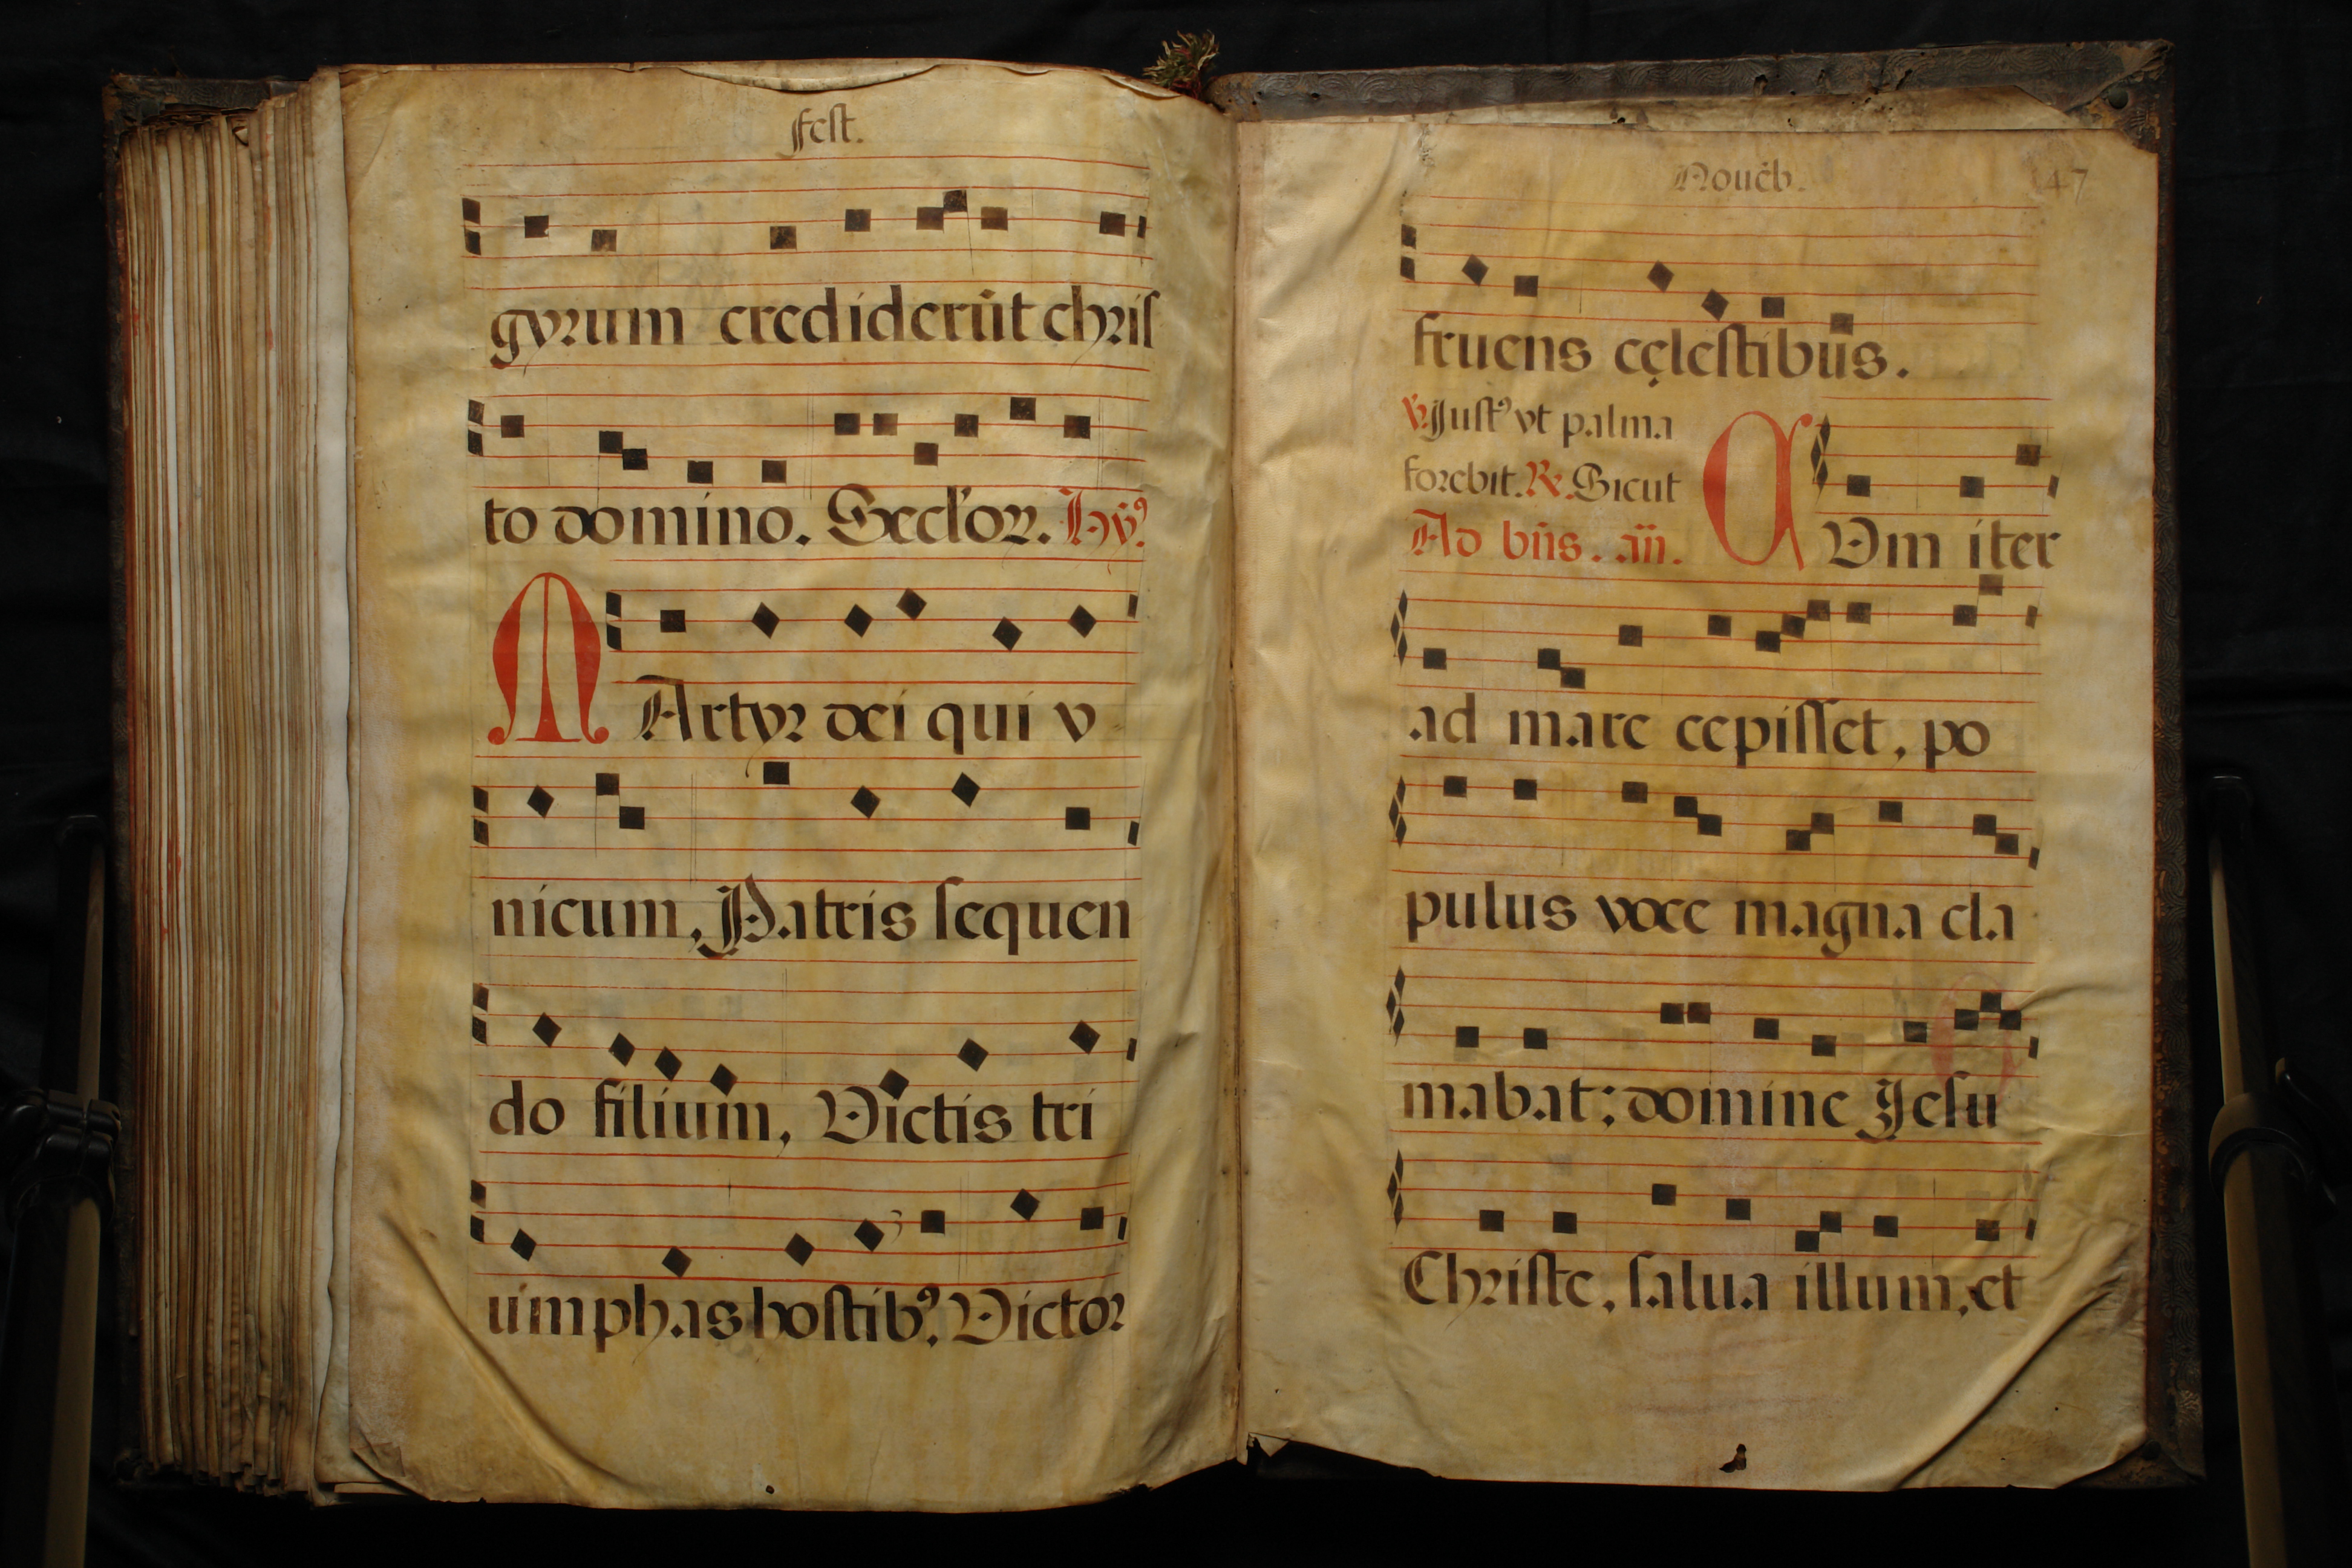 fest.
gyrum crediderūt chris
to domino. Seclor. Hỹ⁹
MArtyr dei qui v
nicum, Patris sequen
do filium, Victis tri
umphas hostib⁹. Victor
Nouēb. 47
fruens cęlestibus.
℣. Just⁹ vt palma
florebit. ℟. Sicut
Ad bñs. añ.
CVm iter
ad mare cepisset, po
pulus voce magna cla
mabat; domine Jesu
Christe, salua illum, et